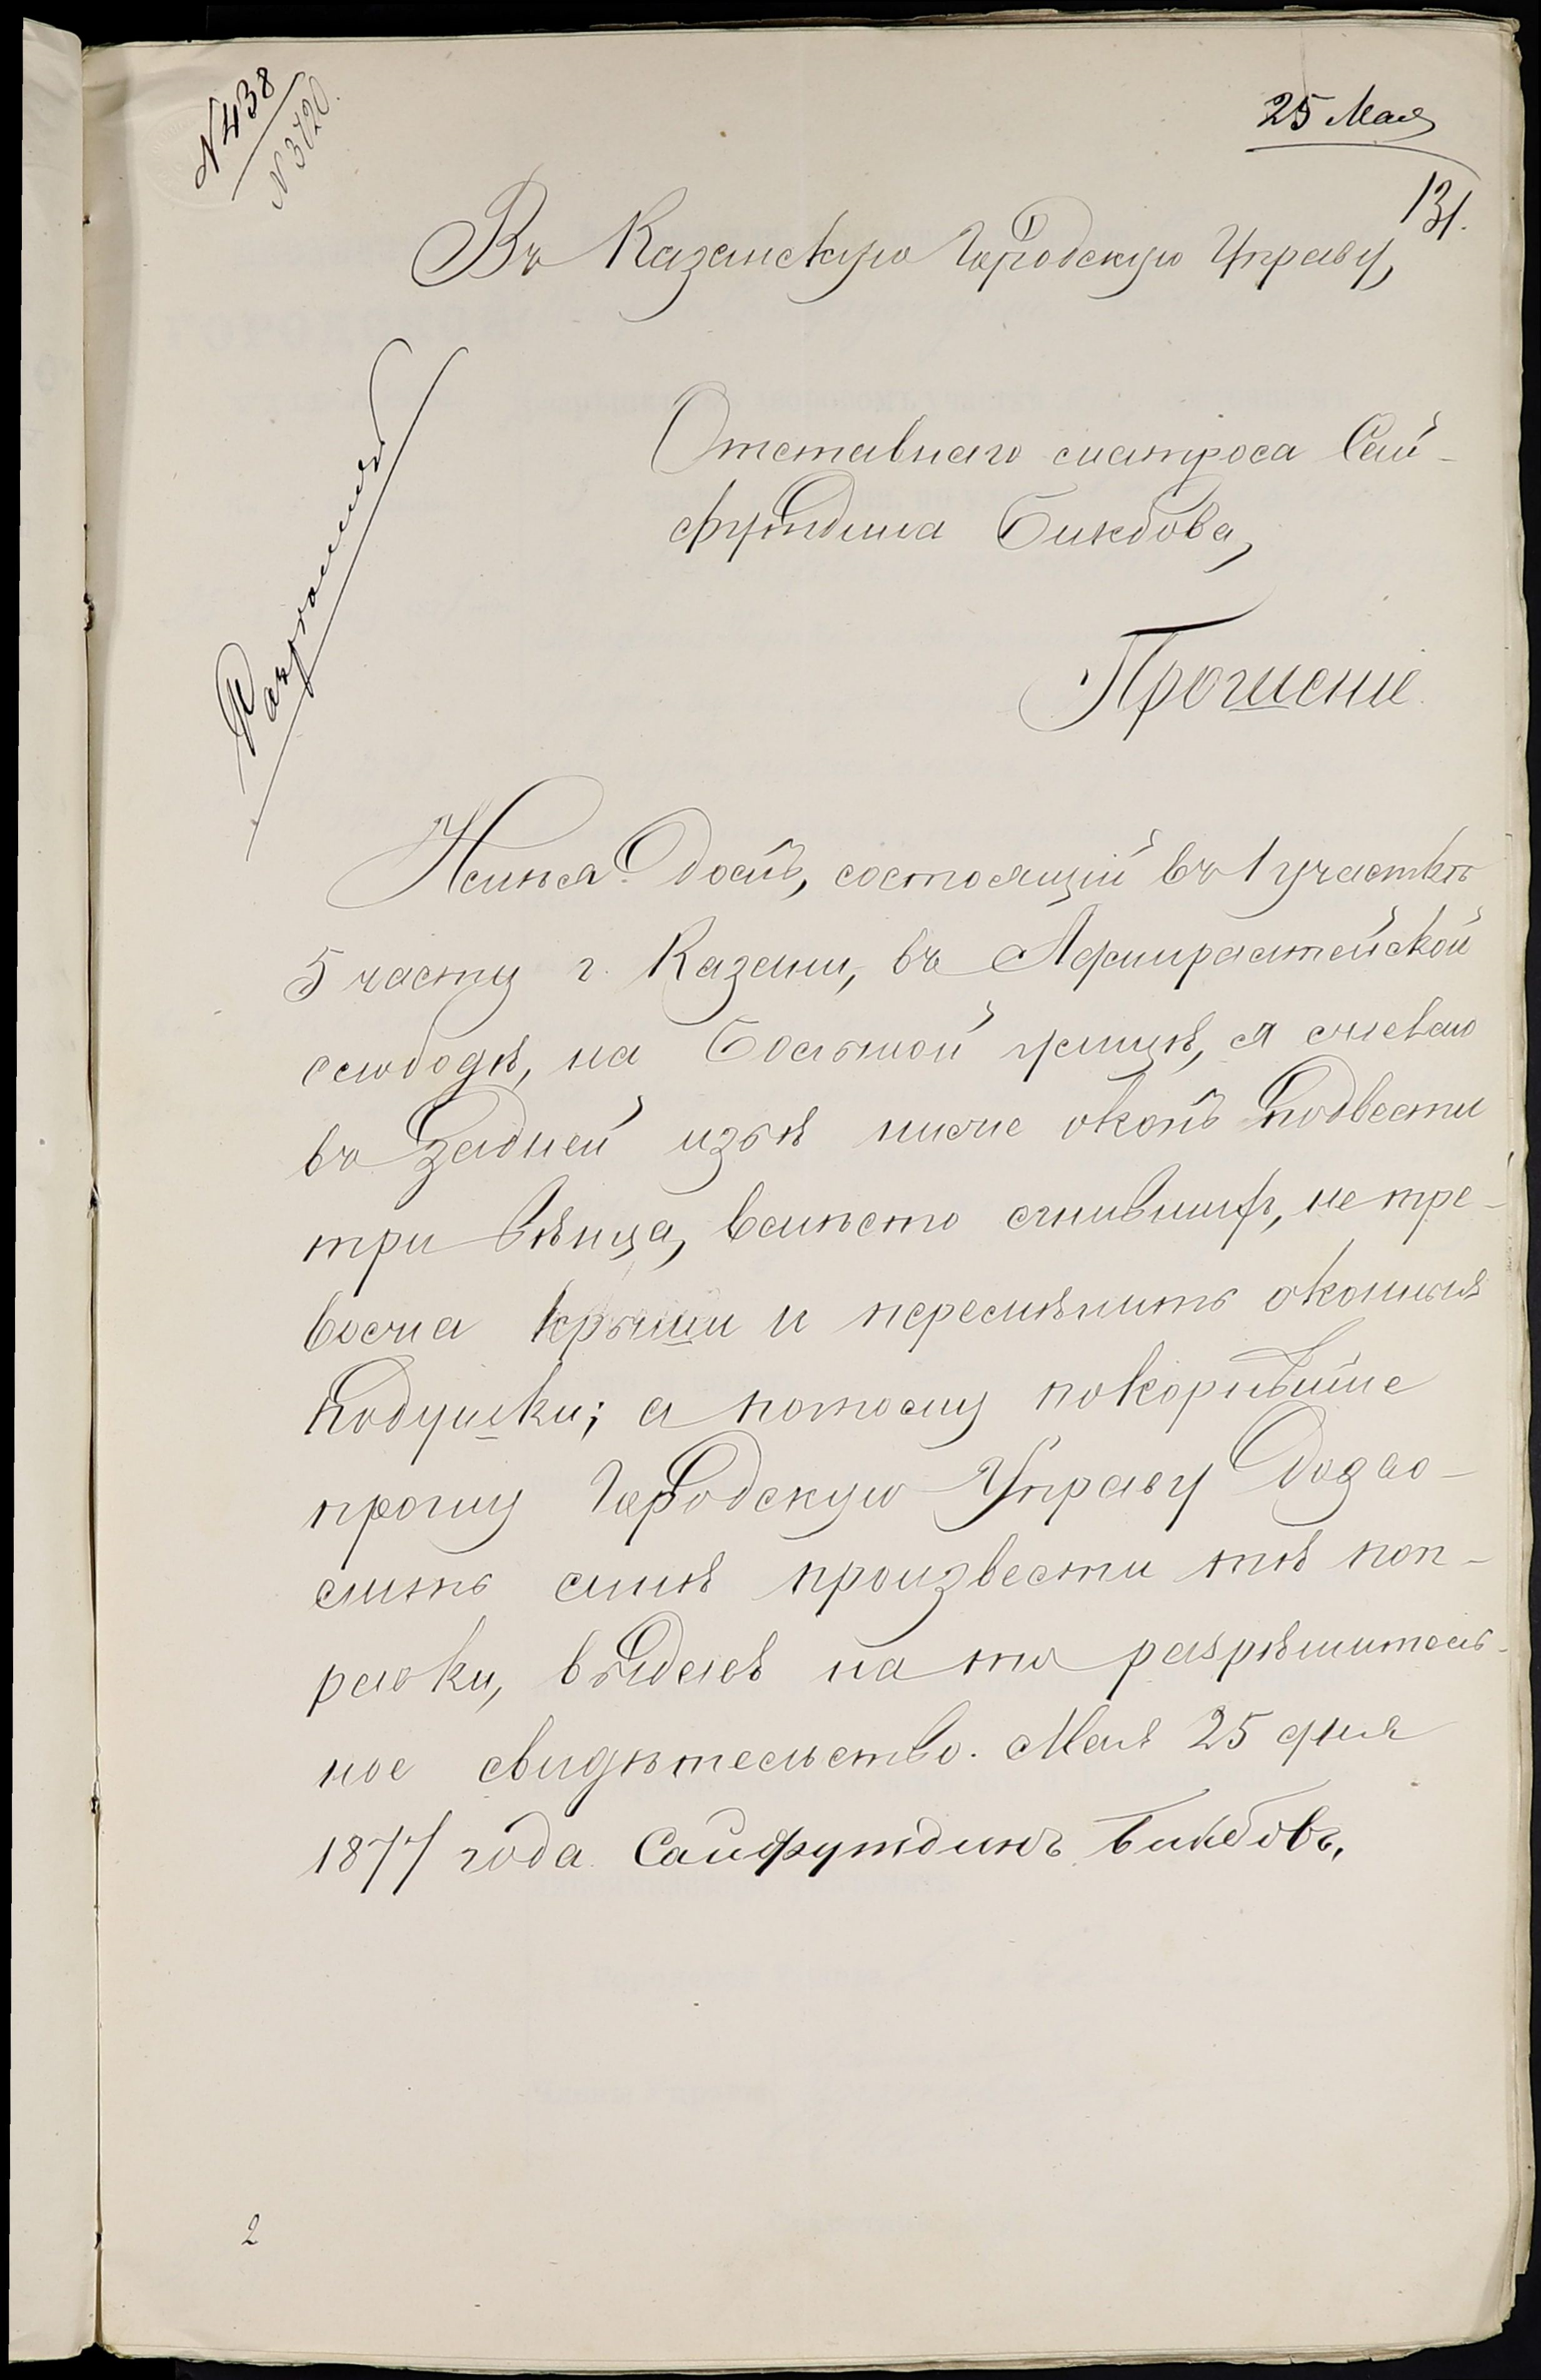 N 438
N 3720.
25 Мая
131.
Въ Казанскую Городскую Управу,
Отставнаго матроса Сай-
футдина Бикбова,
Прошеніе.
Имѣя домъ, состоящій въ 1 участкѣ
5 части г. Казани, въ Адмиралтейской
слободѣ, на Большой улицѣ, я желаю
въ задней избѣ ниже оконъ подвести
три вѣнца, вмѣсто сгнившихъ, не тре-
вожа крыши и перемѣнить оконныя
подушки; а потому покорнѣйше
прошу Городскую Управу дозво-
лить мнѣ произвести тѣ поп-
равки, выдавъ на то разрѣшитель-
ное свидѣтельство. Мая 25 дня
1877 года. Сайфутдинъ Бикбовъ.
2